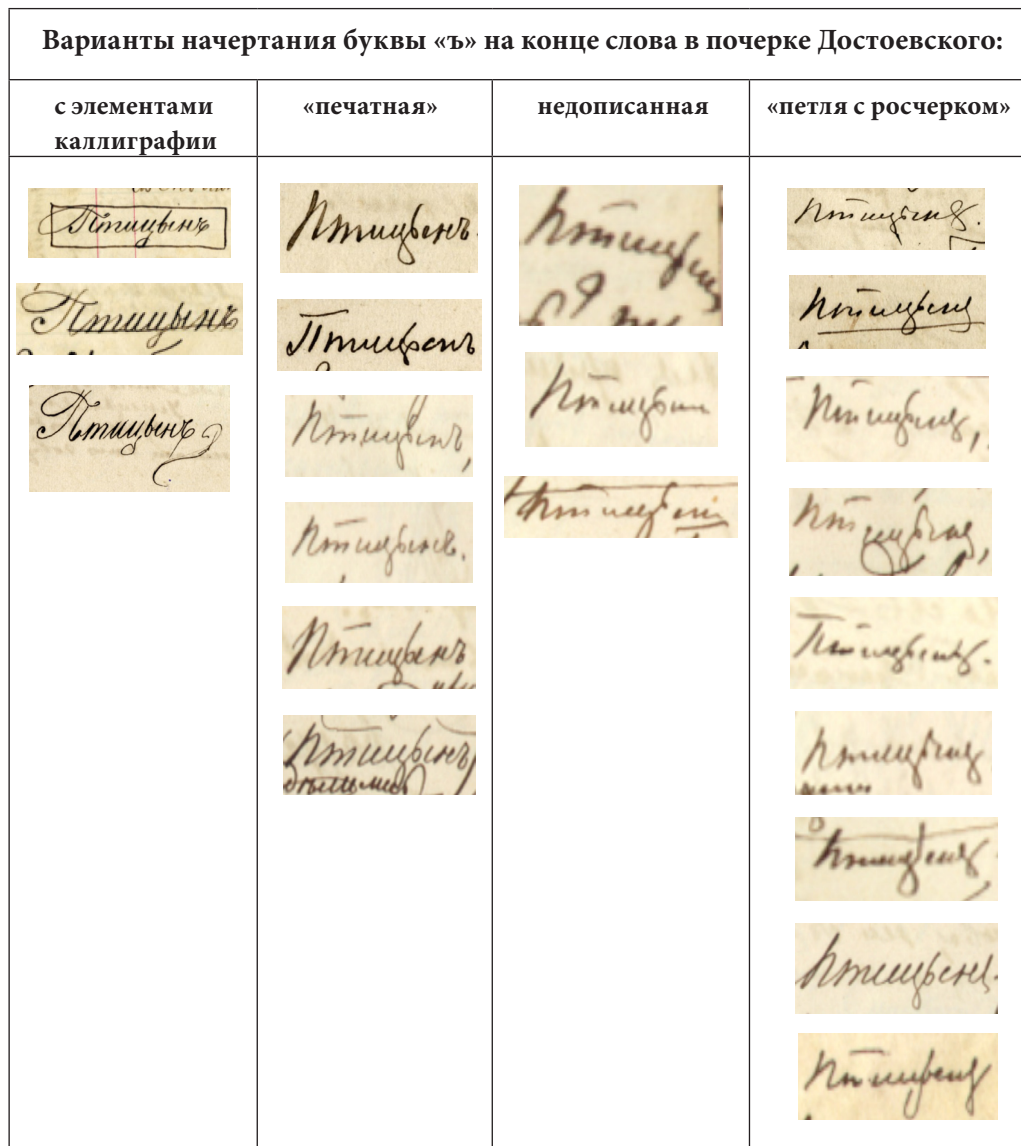 Варианты начертания буквы «ъ» на конце слова в почерке Достоевского:
с элементами каллиграфии
«печатная»
недописанная
«петля с росчерком»
Птицынъ
Птицынъ
Птицынъ
Птицынъ.
Птицынъ
Птицынъ,
Птицынъ.
Птицынъ
Птицынъ
Птицын
Птицын
Птицын
Птицынъ.
Птицынъ
Птицынъ,
Птицынъ,
Птицынъ.
Птицынъ
Птицынъ
Птицынъ.
Птицынъ